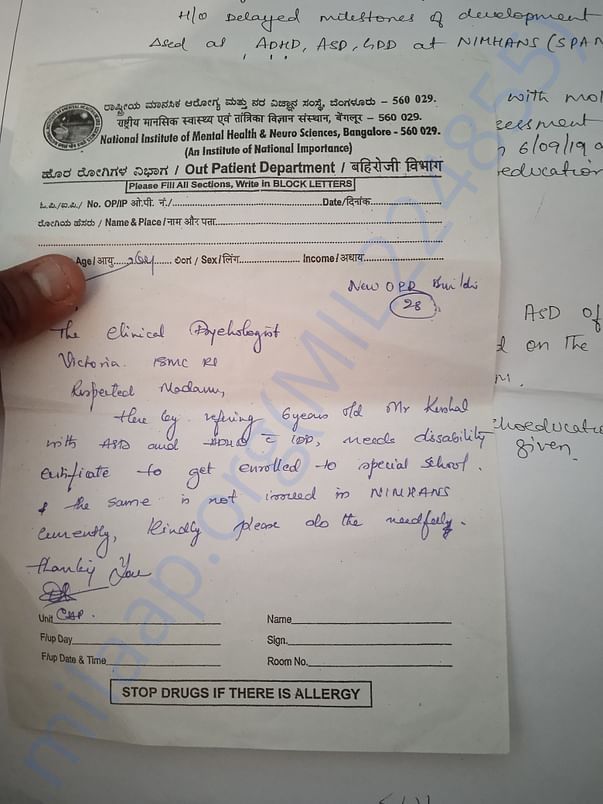 H/o Delayed milestones of development
ADHD, ASD, GDD at NIMHANS (SPAN
with
6/09/19
ರಾಷ್ಟ್ರೀಯ ಮಾನಸಿಕ ಆರೋಗ್ಯ ಮತ್ತು ನರ ವಿಜ್ಞಾನ ಸಂಸ್ಥೆ, ಬೆಂಗಳೂರು – 560 029.
राष्ट्रीय मानसिक स्वास्थ्य एवं तांत्रिका विज्ञान संस्थान, बेंगलूर – 560 029.
National Institute of Mental Health & Neuro Sciences, Bangalore - 560 029.
(An Institute of National Importance)
ಹೊರ ರೋಗಿಗಳ ವಿಭಾಗ / Out Patient Department / बहिरोजी विभाग
Please Fill All Sections, Write in BLOCK LETTERS
ಓ.ಪಿ./ಐ.ಪಿ./ No. OP/IP ओ.पी. नं./ Date/दिनांक
ರೋಗಿಯ ಹೆಸರು / Name & Place / नाम और पता
Age/आयु Sex/लिंग Income/
New OPD
28
ASD of
on the
The Clinical Psychologist
Victoria
Respected Madam,
Here by 6years old Mr
with ASD and needs disability
certificate to get enrolled to special school.
& the same is not issued in NIMHANS
currently, kindly please do the
given.
Thanking You
Unit
Name
F/up Day
Sign.
F/up Date & Time
Room No.
STOP DRUGS IF THERE IS ALLERGY
milaap.org(MIL224855)